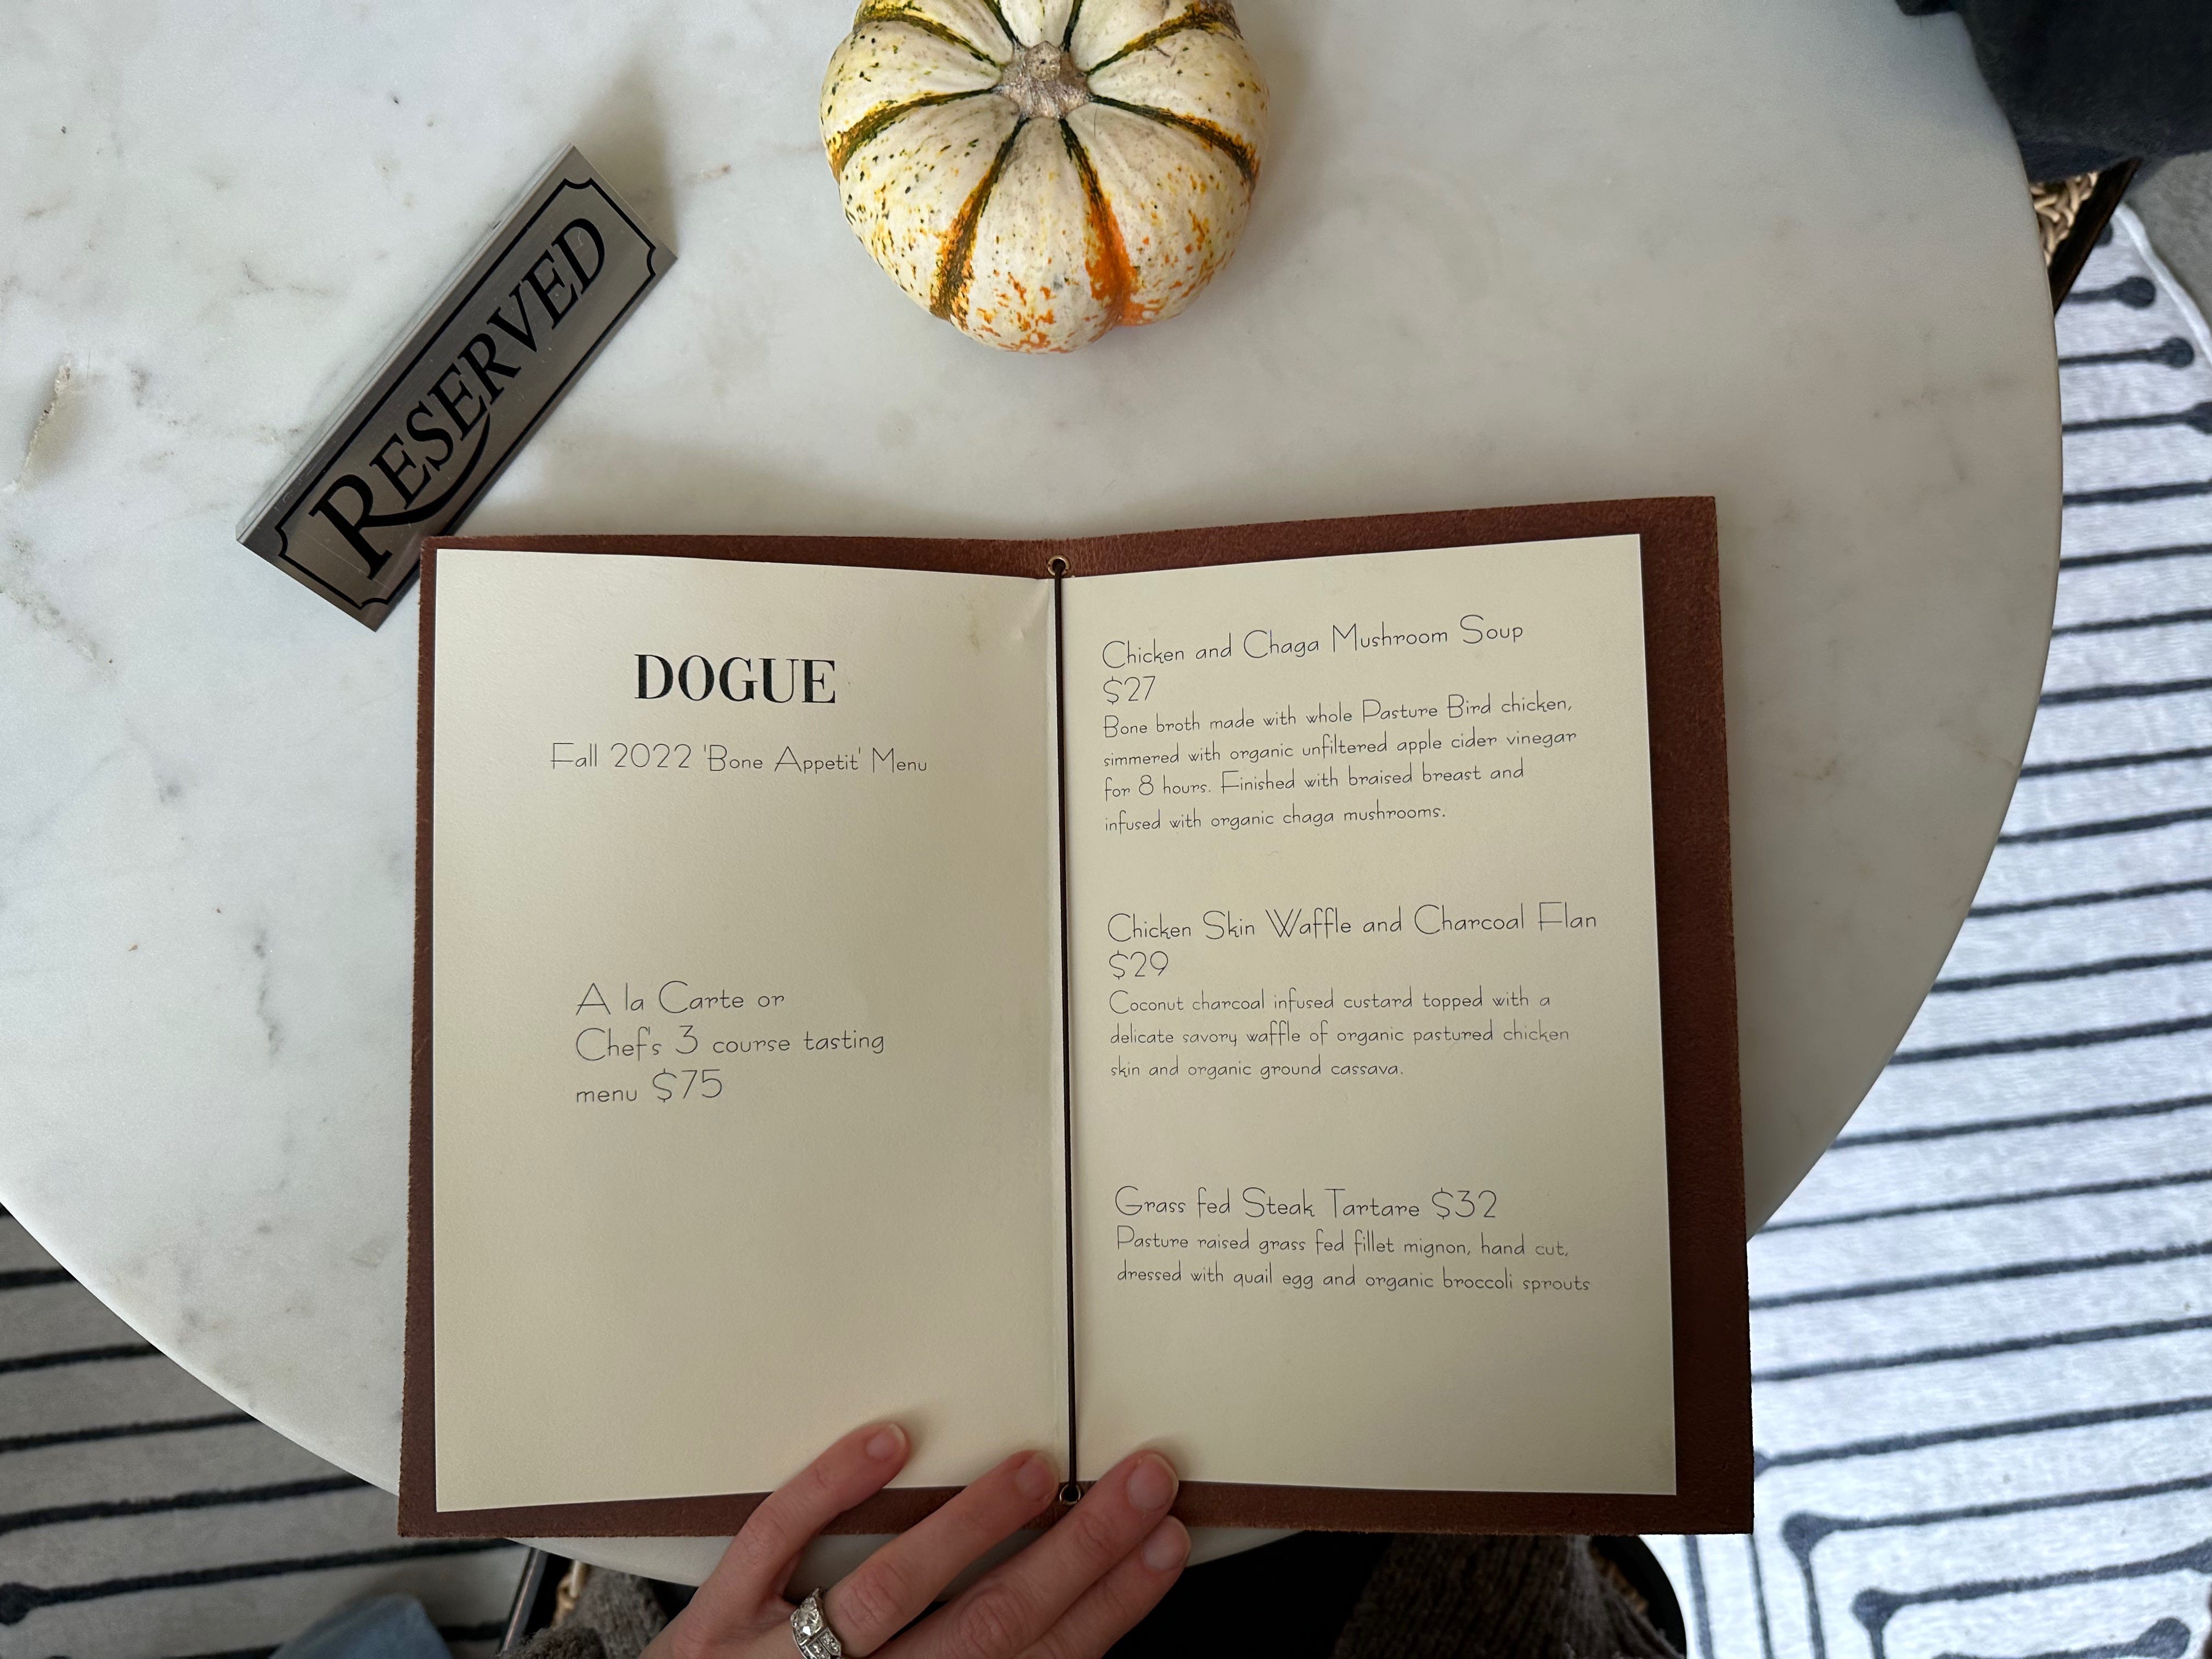 RESERVED
DOGUE
Fall 2022 'Bone Appetit' Menu
A la Carte or
Chef's 3 course tasting
menu $75
Chicken and Chaga Mushroom Soup
$27
Bone broth made with whole Pasture Bird chicken,
simmered with organic unfiltered apple cider vinegar
for 8 hours. Finished with braised breast and
infused with organic chaga mushrooms.
Chicken Skin Waffle and Charcoal Flan
$29
Coconut charcoal infused custard topped with a
delicate savory waffle of organic pastured chicken
skin and organic ground cassava.
Grass fed Steak Tartare $32
Pasture raised grass fed fillet mignon, hand cut,
dressed with quail egg and organic broccoli sprouts